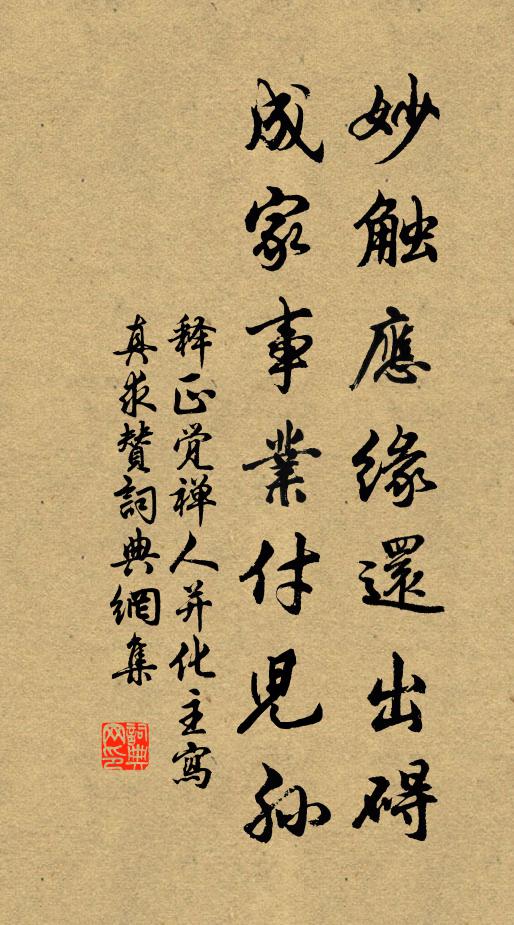 妙触應缘還出碍
成家事業付児孫
释正觉禅人并化主寫
真求赞詞典網集
詞典网印